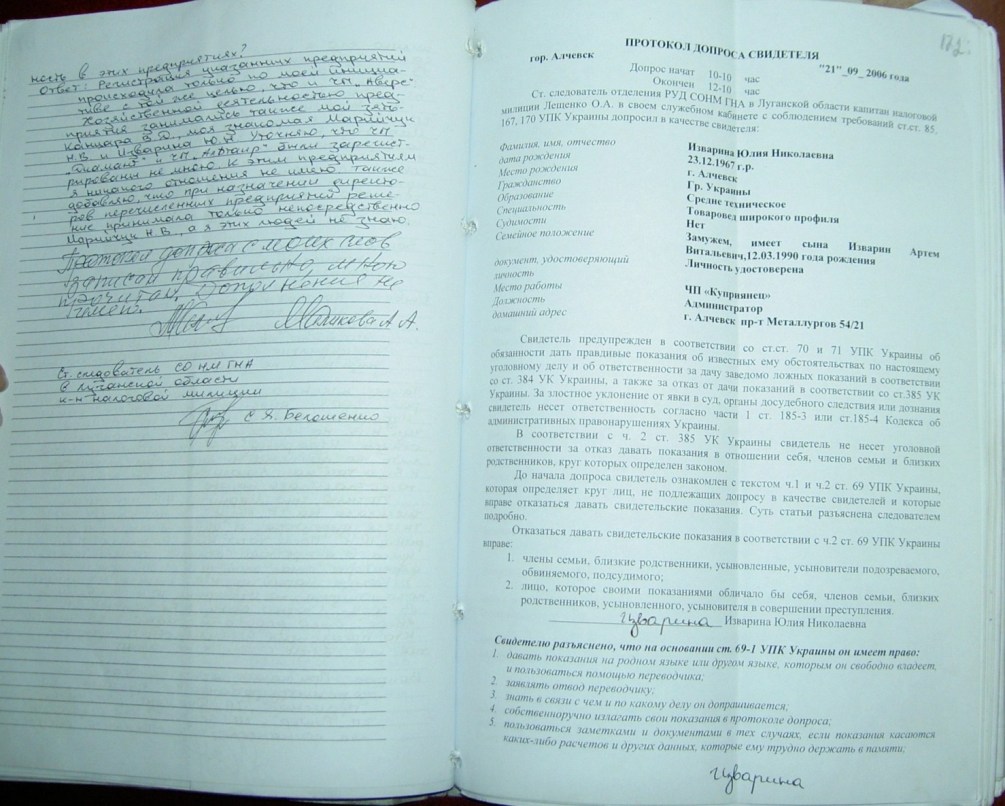 ность в этих предприятиях?
Ответ: Регистрация указанных предприятий
происходила только по моей инициа-
тиве с той же целью, что и ЧП „Аверс"
Хозяйственной деятельностью пред-
приятия занимались также мой зять
В.Ю., моя знакомая Марийчук
Н.В. и Изварина Ю.Н. Уточняю, что ЧП
„Диамант" и ЧП были зарегист-
рированы не мною к этим предприятиям
я никакого отношения не имею. Также
добавляю, что при назначении директо-
ров перечисленных предприятий реше-
ние принимала только непосредственно
Марийчук Н.В., а я этих людей не знаю.
Протокол допроса с моих слов
записан правильно, мною
прочитан. Дополнений не
имею.
А.А.
Ст. следователь СО НМ ГНА
в Луганской области
к-н налоговой милиции
С.Я. Белошенко
172
ПРОТОКОЛ ДОПРОСА СВИДЕТЕЛЯ
гор. Алчевск "21"_09_ 2006 года
Допрос начат 10-10 час
Окончен 12-10 час
Ст. следователь отделения РУД СОНМ ГНА в Луганской области капитан налоговой
милиции Лещенко О.А. в своем служебном кабинете с соблюдением требований ст.ст. 85,
167, 170 УПК Украины допросил в качестве свидетеля:
Фамилия, имя, отчество Изварина Юлия Николаевна
дата рождения 23.12.1967 г.р.
Место рождения г. Алчевск
Гражданство Гр. Украины
Образование Средне техническое
Специальность Товаровед широкого профиля
Судимости Нет
Семейное положение Замужем, имеет сына Изварин Артем
Витальевич,12.03.1990 года рождения
документ, удостоверяющий Личность удостоверена
личность
Место работы ЧП «Куприянец»
Должность Администратор
домашний адрес г. Алчевск пр-т Металлургов 54/21
Свидетель предупрежден в соответствии со ст.ст. 70 и 71 УПК Украины об
обязанности дать правдивые показания об известных ему обстоятельствах по настоящему
уголовному делу и об ответственности за дачу заведомо ложных показаний в соответствии
со ст. 384 УК Украины, а также за отказ от дачи показаний в соответствии со ст.385 УК
Украины. За злостное уклонение от явки в суд, органы досудебного следствия или дознания
свидетель несет ответственность согласно части 1 ст. 185-3 или ст.185-4 Кодекса об
административных правонарушениях Украины.
В соответствии с ч. 2 ст. 385 УК Украины свидетель не несет уголовной
ответственности за отказ давать показания в отношении себя, членов семьи и близких
родственников, круг которых определен законом.
До начала допроса свидетель ознакомлен с текстом ч.1 и ч.2 ст. 69 УПК Украины,
которая определяет круг лиц, не подлежащих допросу в качестве свидетелей и которые
вправе отказаться давать свидетельские показания. Суть статьи разъяснена следователем
подробно.
Отказаться давать свидетельские показания в соответствии с ч.2 ст. 69 УПК Украины
вправе:
1. члены семьи, близкие родственники, усыновленные, усыновители подозреваемого,
обвиняемого, подсудимого;
2. лицо, которое своими показаниями обличало бы себя, членов семьи, близких
родственников, усыновленного, усыновителя в совершении преступления.
Изварина Изварина Юлия Николаевна
Свидетелю разъяснено, что на основании ст. 69-1 УПК Украины он имеет право:
1. давать показания на родном языке или другом языке, которым он свободно владеет,
и пользоваться помощью переводчика;
2. заявлять отвод переводчику;
3. знать в связи с чем и по какому делу он допрашивается;
4. собственноручно излагать свои показания в протоколе допроса;
5. пользоваться заметками и документами в тех случаях, если показания касаются
каких-либо расчетов и других данных, которые ему трудно держать в памяти;
Изварина